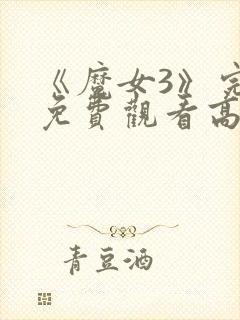 《魔女3》完
免費觀看高
青豆酒